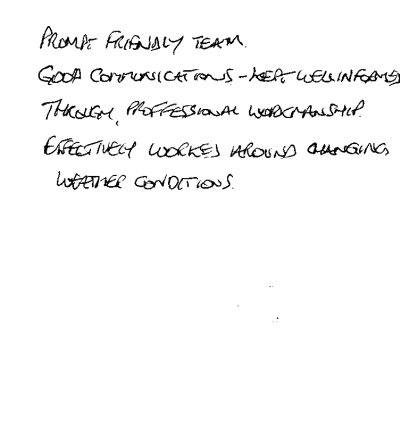 PROMPT FRIENDLY TEAM.
GOOD COMMUNICATIONS - KEPT WELL INFORMED
THROUGH, PROFFESSIONAL WORKMANSHIP.
EFFECTIVELY WORKED AROUND CHANGING
WEATHER CONDITIONS.